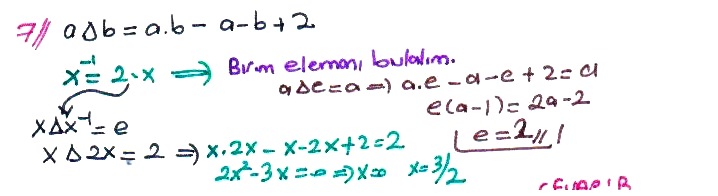 7// a∆b = a.b - a-b+2
x⁻¹ = 2.x ⟹ Birim elemanı bulalım.
a∆e=a ⇒ a.e -a-e+2=a
e(a-1)= 2a-2
x∆x⁻¹=e
e=2//
x∆2x=2 ⇒ x.2x - x-2x+2=2
2x²-3x=0 ⇒ x=0 x=3/2
CEVAP: B